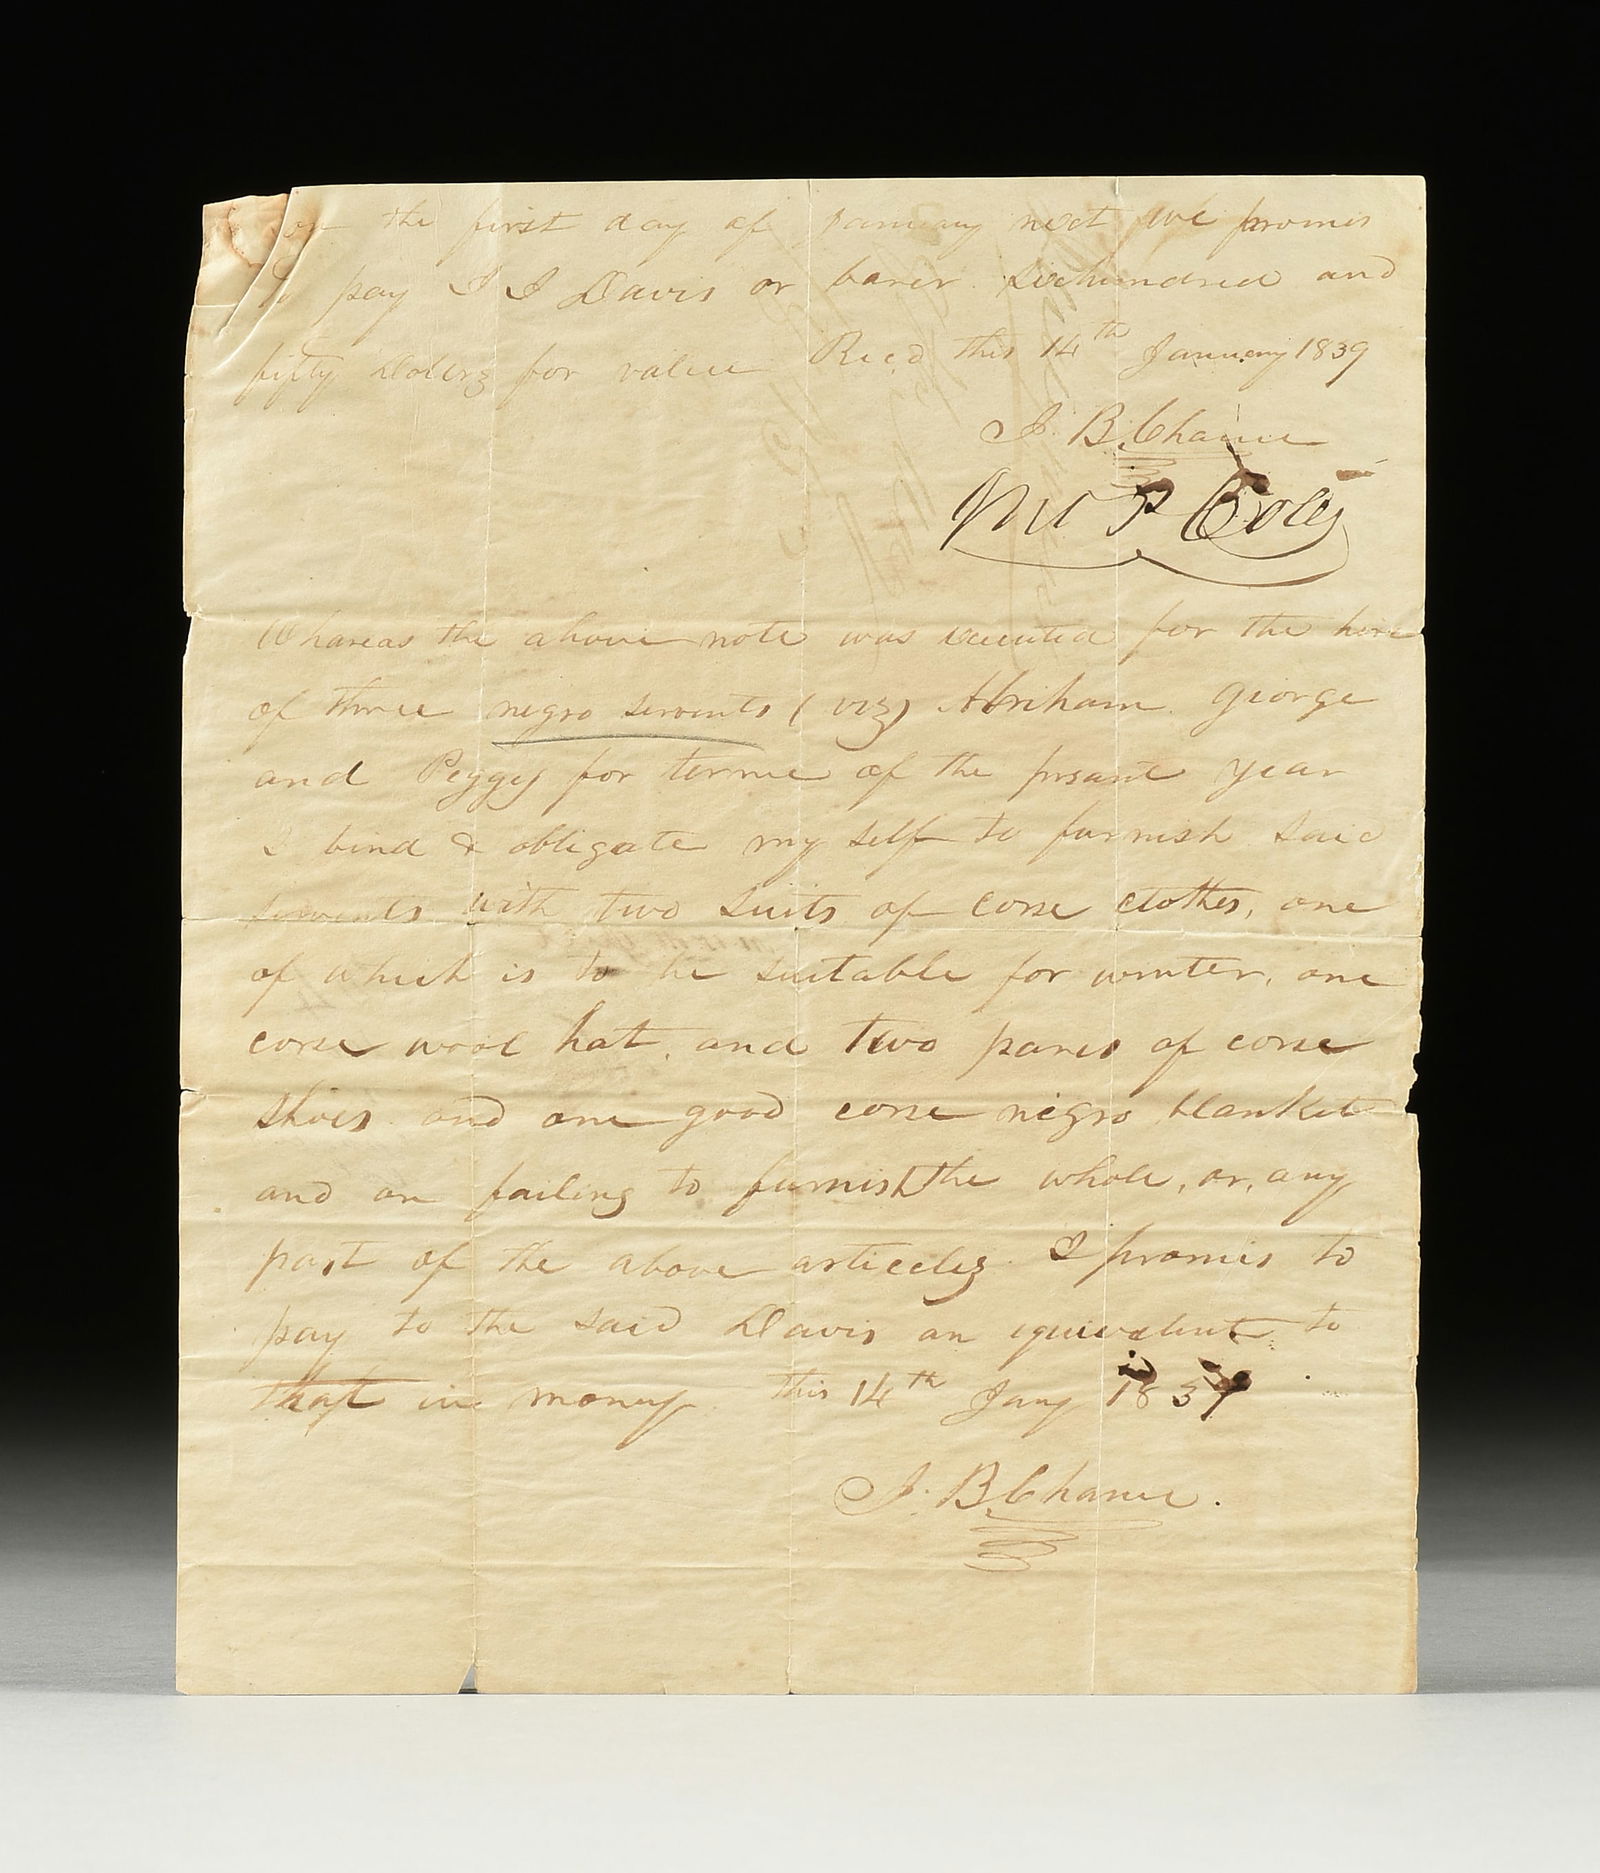 on the first day of January next we promis
To pay I I Davis or barer Sixhundred and
fifty Dolerz for value Recd this 14th January 1839
J. B. Chance
Whareas the above note was executed for the hire
of three negro servents (viz) Abriham George
and Peggy for terme of the prsant year
I bind & obligate my self to furnish said
servents with two suits of corse clothes, one
of which is to be suitable for winter, one
corse wool hat, and two pares of corse
shoes and one good corse negro blanket
and on failing to furnish the whole, or, any
part of the above articelez I promis to
pay to the said Davis an equivalent to
that in money this 14th Jany 1839
J. B. Chance.